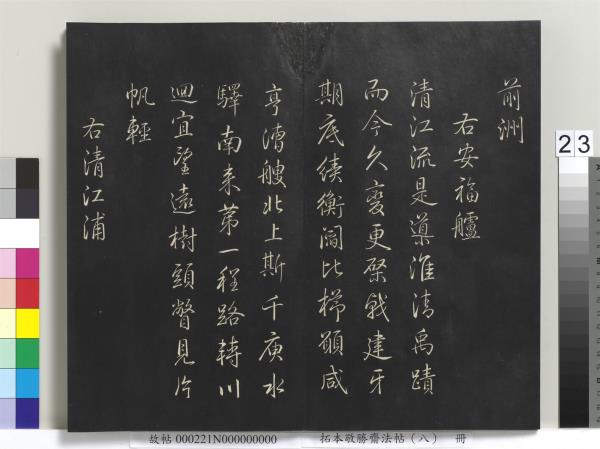 前洲
右安福艫
清江流是導淮清禹蹟
而今久變更槩戟建牙
期底績衡閭比櫛願咸
亨漕艘北上斯千庾水
驛南來第一程路轉川
迴宜望遠樹頭瞥見片
帆輕
右清江浦
23
故帖 000221N000000000
拓本敬勝齋法帖（八） 冊